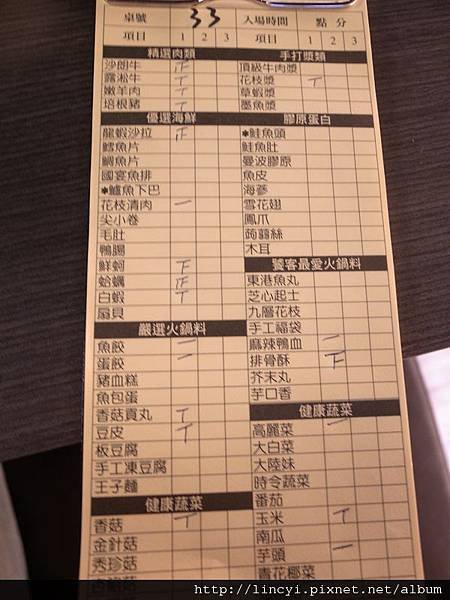 桌號 33 入場時間 點 分
項目 1 2 3 項目 1 2 3
精選肉類 手打漿類
沙朗牛 正 頂級牛肉漿
露淞牛 T 花枝漿 T
嫩羊肉 T 草蝦漿
培根豬 T 墨魚漿
優選海鮮 膠原蛋白
龍蝦沙拉 正 *鮭魚頭
鱈魚片 鮭魚肚
鯛魚片 曼波膠原
國宴魚排 魚皮
*鱸魚下巴 海蔘
花枝清肉 一 雪花翅
尖小卷 鳳爪
毛肚 蒟蒻絲
鴨腸 木耳
鮮蚵 下 饕客最愛火鍋料
蛤蠣 正 東港魚丸
白蝦 T 芝心起士
扇貝 九層花枝
嚴選火鍋料 手工福袋
魚餃 一 麻辣鴨血 一
蛋餃 一 排骨酥 下
豬血糕 芥末丸
魚包蛋 芋口香
香菇貢丸 T 健康蔬菜
豆皮 T 高麗菜 一
板豆腐 大白菜
手工凍豆腐 大陸妹
王子麵 時令蔬菜
健康蔬菜 番茄
香菇 T 玉米 T
金針菇 南瓜
秀珍菇 芋頭 一
青花椰菜
http://lincyi.pixnet.net/album